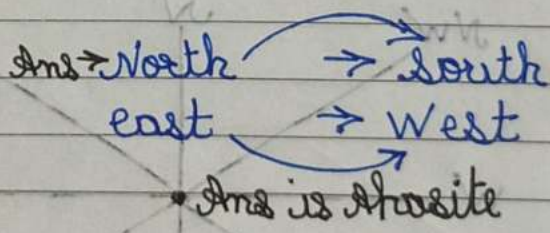 Ans → North → South
east → West
• Ans is Aposite